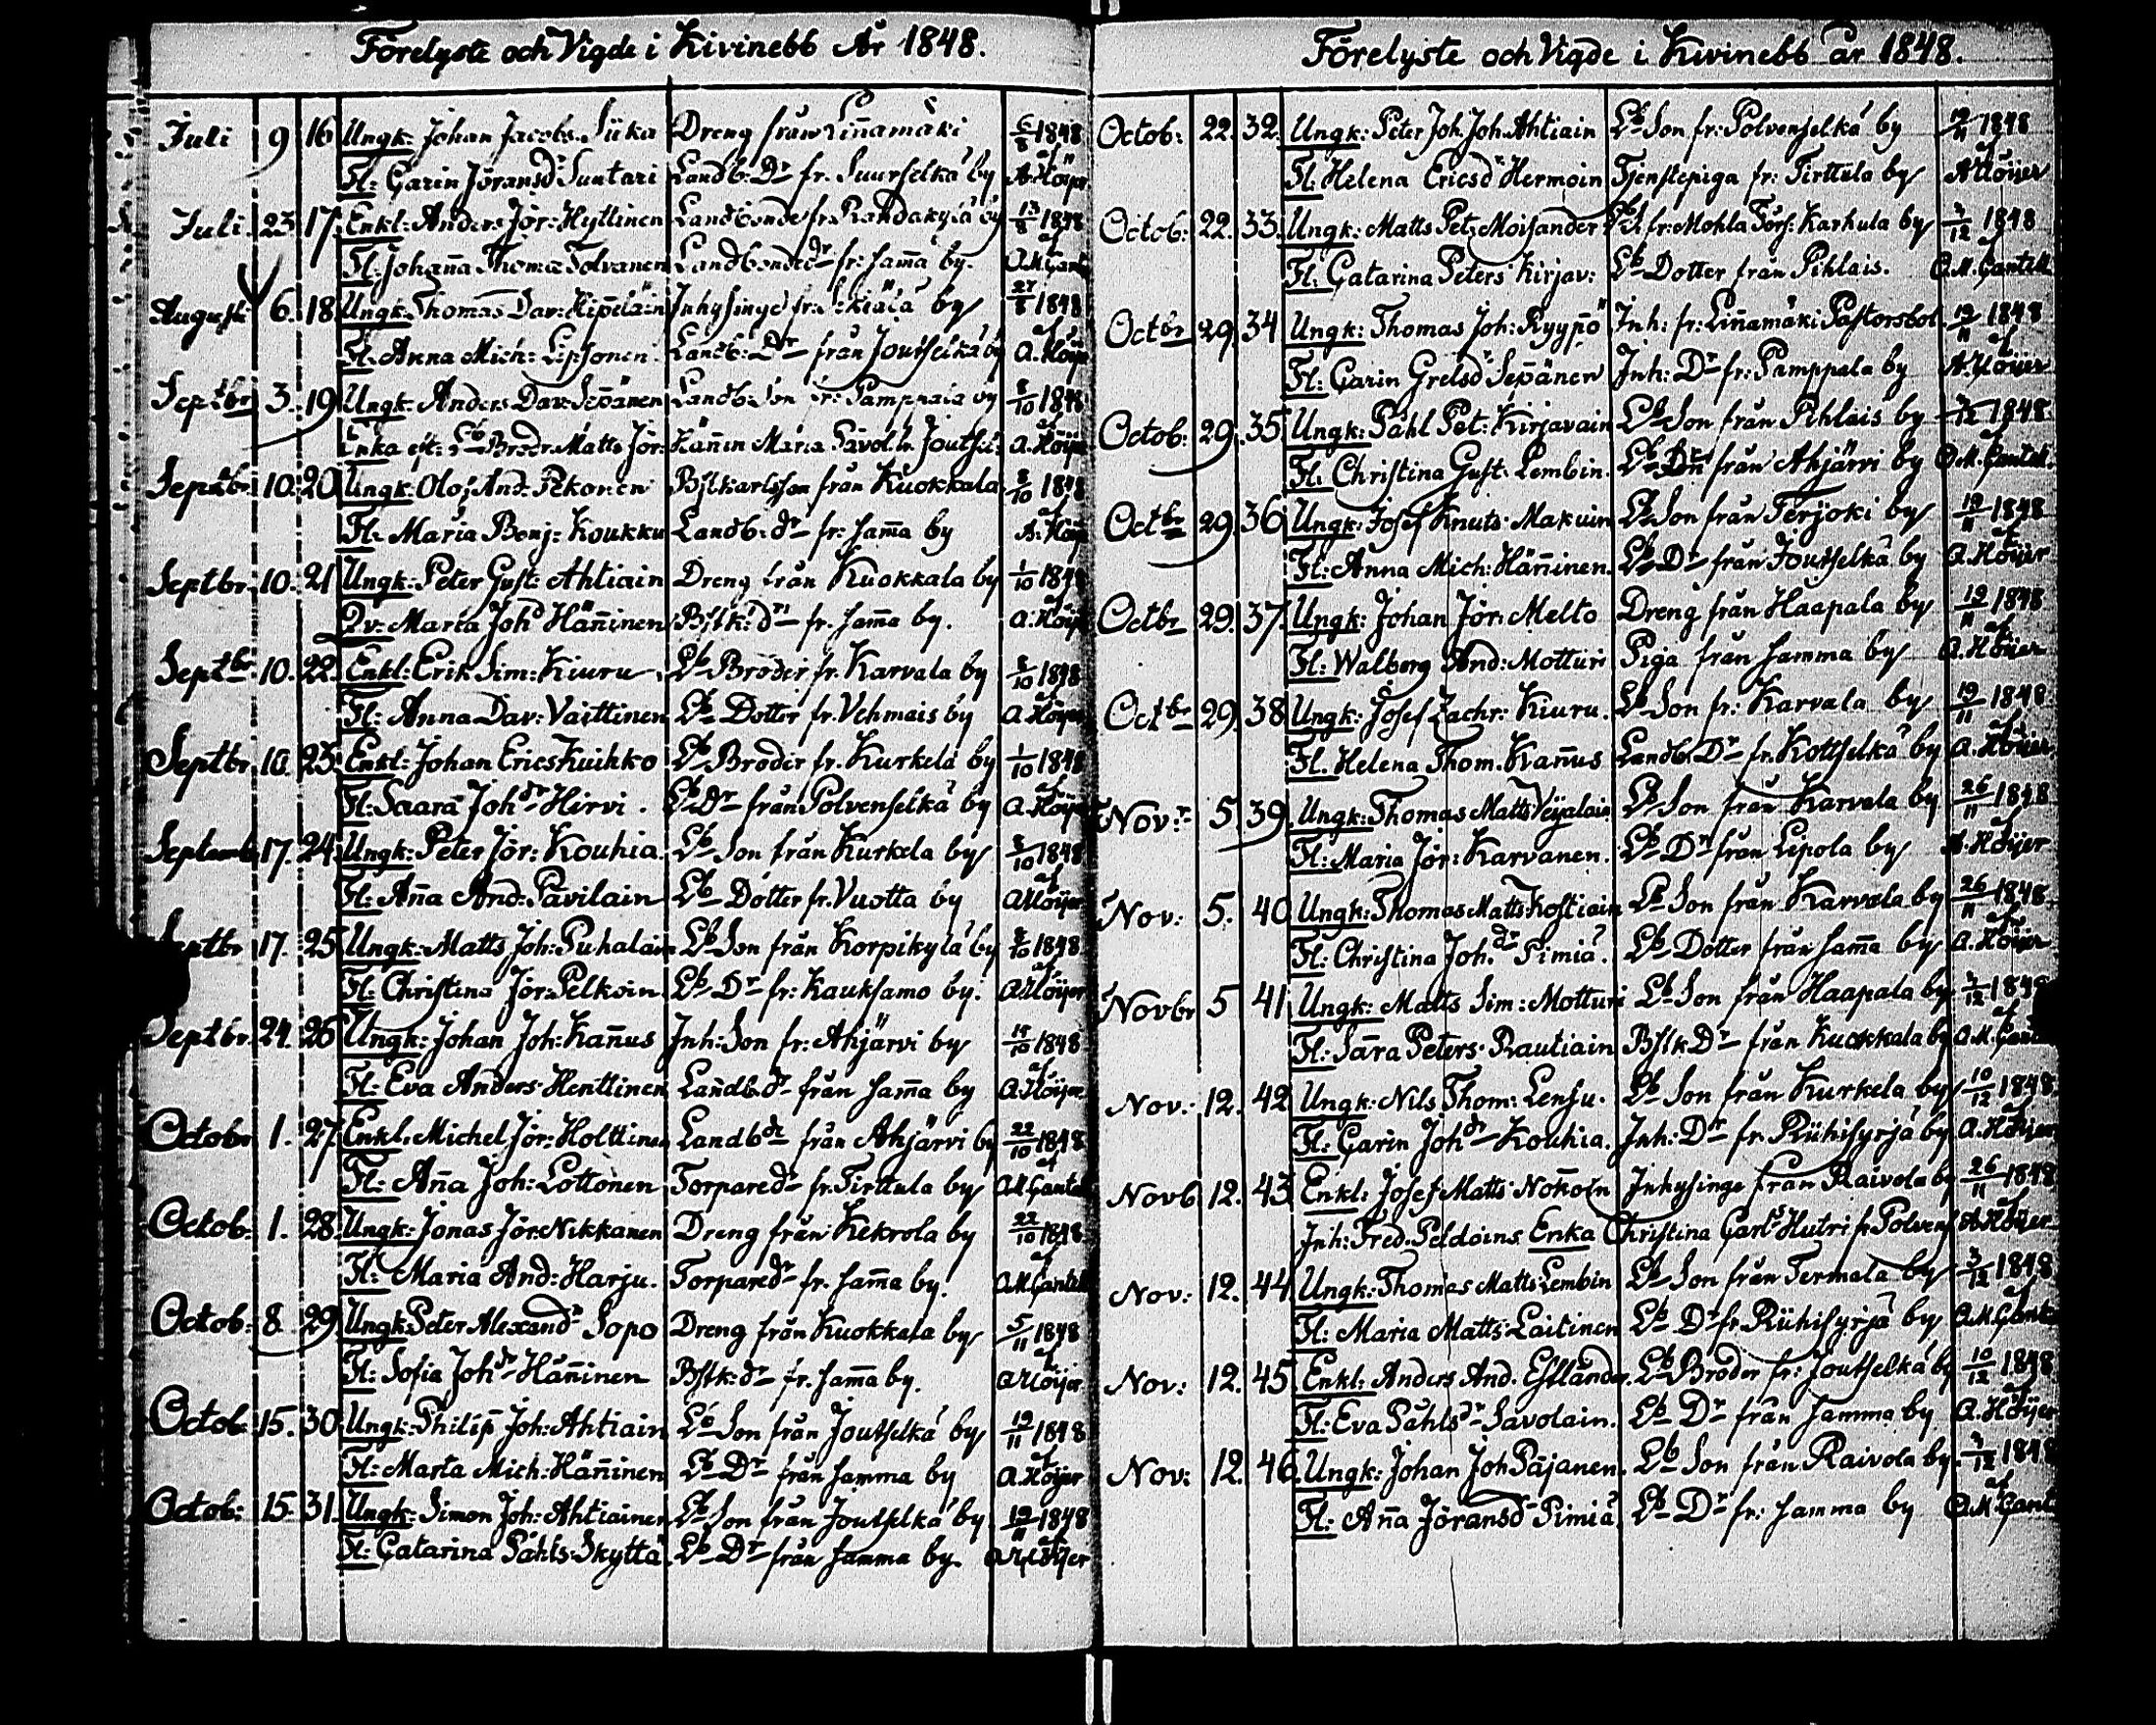 Förelyste och Vigde i Kivinebb År 1848.
Juli 9 16 Ungk: Johan Jacobs. Siika Dreng från Liñamäki 6/8 1848
Fl: Carin Jöransdr Suntari Landb: Dr fr. Suurselkä by af A. Höijer
Juli 23 17. Enkl: Anders Jör: Hyttinen Landbonde fr. Randakylä by 13/8 1848
Fl: Johaña Thomæ Tolvanen Landbondedr fr: sam̄a by. af A.M. Gant
Augusti 6. 18 Ungk: Thomas Dav: Hip̄eläin Inhysinge fr. by 27/8 1848
Fl. Anna Mich: Lipsonen. Landb: Dr från Joutselkä by af A. Höije
Septbr 3. 19 Ungk: Anders Dav: Sep̄änen Landb: Son fr: Pamppala by 8/10 1848
Enka eft: Lb Brodr. Matts Jör: Häñinen Maria Savol:n Joutsel: af A. Höije
Septbr. 10. 20 Ungk: Olof And: Pekonen Bstkarlsson från Kuokkala 8/10 1848
Fl. Maria Benj: Koukku Landb: dr fr: sam̄a by af A. Höij
Septbr. 10. 21 Ungk: Peter Gust: Ahtiain Dreng från Kuokkala by 1/10 1848
Qv: Maria Johd Häñinen Bstk: dr fr. sam̄a by. af A. Höije
Septbr. 10. 22. Enkl: Erik Sim: Kiuru Lb Broder fr. Karvala by 8/10 1848
Fl: Anna Dav: Väittinen Lb Dotter fr. Vehmais by af A. Höijer
Septbr. 10. 23. Enkl: Johan Erics Kuihko Lb Broder fr. Kurkela by 1/10 1848
Fl: Saara Johdr Hirvi. Lb Dr från Polvenselkä by af A. Höije
Septemb. 17. 24. Ungk: Peter Jör: Kouhia Lb Son från Kurkela by 8/10 1848
Fl: Aña And: Pavilain Lb Dotter fr. Vuotta by af A. Höijer
Septbr. 17. 25 Ungk: Matts Joh: Puhalain Lb Son från Korpikylä by 8/10 1848
Fl: Christina Jör: Pelkoin Lb Dr fr: Kauksamo by. af A. Höijer
Septbr. 24. 26 Ungk: Johan Joh: Kañus Inh: Son fr: Ahjärvi by 15/10 1848
Fl: Eva Anders: Henttinen Landb. dr från sam̄a by af A. Höije
Octobr 1. 27 Enkl: Michel Jör: Holttinen Landb dr från Ahjärvi by 22/10 1848
Fl: Aña Joh: Lottonen Torparedr fr. Tirttula by af A.M. Gantel
Octob: 1. 28. Ungk: Jonas Jör. Nikkanen Dreng från Kekrola by 22/10 1848
Fl: Maria And: Harju. Torparedr fr. sam̄a by. af A.M. Gantell
Octob: 8 29 Ungk: Peter Alexandr Sopo Dreng från Kuokkala by 5/11 1848
Fl: Sofia Johdr Häñinen Bstk: dr fr. sam̄a by. af A. Höijer
Octob. 15. 30. Ungk: Philip̄ Joh: Ahtiain Lb Son från Joutselkä by 19/11 1848
Fl: Marta Mich: Häñinen Lb Dr från samma by af A. Höijer
Octob: 15. 31. Ungk: Simon Joh: Ahtiainen Lb Son från Joutselkä by 19/11 1848
Fl: Catarina Påhls. Skyttä Lb Dr från samma by. af A. Höijer
Förelyste och Vigde i Kivinebb år 1848.
Octob: 22. 32. Ungk: Peter Joh. Joh. Ahtiain Lb Son fr: Polvenselkä by 19/11 1848
Fl: Helena Ericsd Hermoin Tjenstepiga fr: Tirttula by af A. Höijer
Octob: 22. 33. Ungk: Matts Pet: Moisander fr: Mohla Förs: Karhula by 3/12 1848
Fl: Catarina Peters Kirjav: Lb Dotter från Pihlais. af A.M. Gantell
Octbr 29. 34 Ungk: Thomas Joh: Ryyp̄ö Inh: fr: Liñamäki Pastorsbol. 19/11 1848
Fl: Carin Grelsdr Sep̄änen Inh: Dr fr: Pamppala by af A. Höijer
Octob: 29. 35 Ungk: Påhl Pet: Kirjavain Lb Son från Pihlais by 3/12 1848
Fl: Christina Gust: Lembin. Lb Dr från Ahjärvi by af A.M. Gantell.
Octbr 29. 36 Ungk: Josef Knuts: Makuin Lb Son från Terjoki by 19/11 1848
Fl: Anna Mich: Häñinen. Lb Dr från Joutselkä by af A. Höijer
Octbr 29. 37. Ungk: Johan Jör: Melto Dreng från Haapala by 19/11 1848
Fl: Walborg And: Motturi Piga från samma by af A. Höijer
Octbr 29. 38 Ungk: Josef Zachr: Kiuru. Lb Son fr: Karvala by 19/11 1848
Fl. Helena Thom. Kañus Landb. Dr fr. Kottselkä by af A. Höijer
Nov:r 5 39 Ungk: Thomas Matts Veijalain Lb Son från Karvala by 26/11 1848
Fl: Maria Jör: Karvanen. Lb Dr från Lepola by af A. Höijer
Nov: 5. 40 Ungk: Thomas Matts Kostiain Lb Son från Karvala by 26/11 1848
Fl: Christina Joh.dr Pimiä. Lb Dotter från sam̄a by af A. Höijer
Novbr 5 41 Ungk: Matts Sim: Motturi Lb Son från Haapala by 3/12 1848
Fl: Sara Peters: Rautiain Bstk Dr från Kuokkala by af A.M. Gant
Nov: 12. 42 Ungk: Nils Thom: Lensu. Lb Son från Kurkela by 10/12 1848
Fl: Carin Johdr Kouhia. Inh: Dr fr. Riihisyrjä by af A. Höijer
Novb 12. 43 Enkl: Josef Matts Nok̄oin Inhysinge från Raivola by 26/11 1848
Inh: Fred. Peldoins Enka Christina Carls Hutri fr Polvens af A. Höijer
Nov: 12. 44 Ungk: Thomas Matts Lembin Lb Son från Termala by 3/12 1848
Fl: Maria Matts: Laitinen Lb Dr fr Riihisyrjä by af A.M. Gante
Nov: 12. 45 Enkl: Anders And. Estlander. Lb Broder fr: Joutselkä by 10/12 1848
Fl: Eva Påhlsdr Savolain. Lb Dr från samma by af A. Höijer
Nov: 12. 46. Ungk: Johan Joh Pajanen. Lb Son från Raivola by. 3/12 1848
Fl: Aña Jöransd Pimiä Lb Dr fr: samma by af A.M. Gant